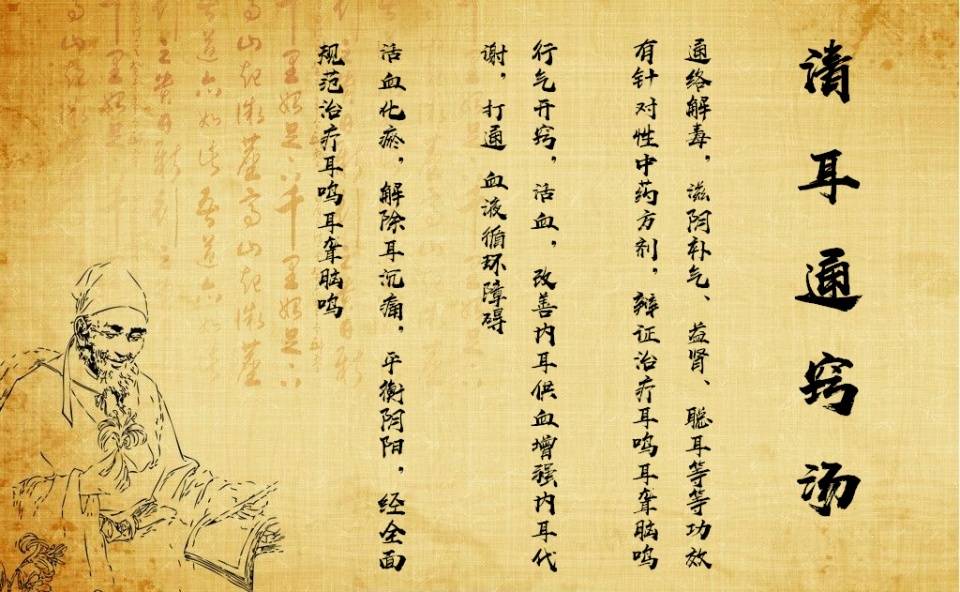 清耳通窍汤
通络解毒，滋阴补气、益肾、聪耳等等功效
有针对性中药方剂，辩证治疗耳鸣耳聋脑鸣
行气开窍，活血，改善内耳供血增强内耳代
谢，打通 血液循环障碍
活血化瘀，解除耳沉痛，平衡阴阳，经全面
规范治疗耳鸣耳聋脑鸣